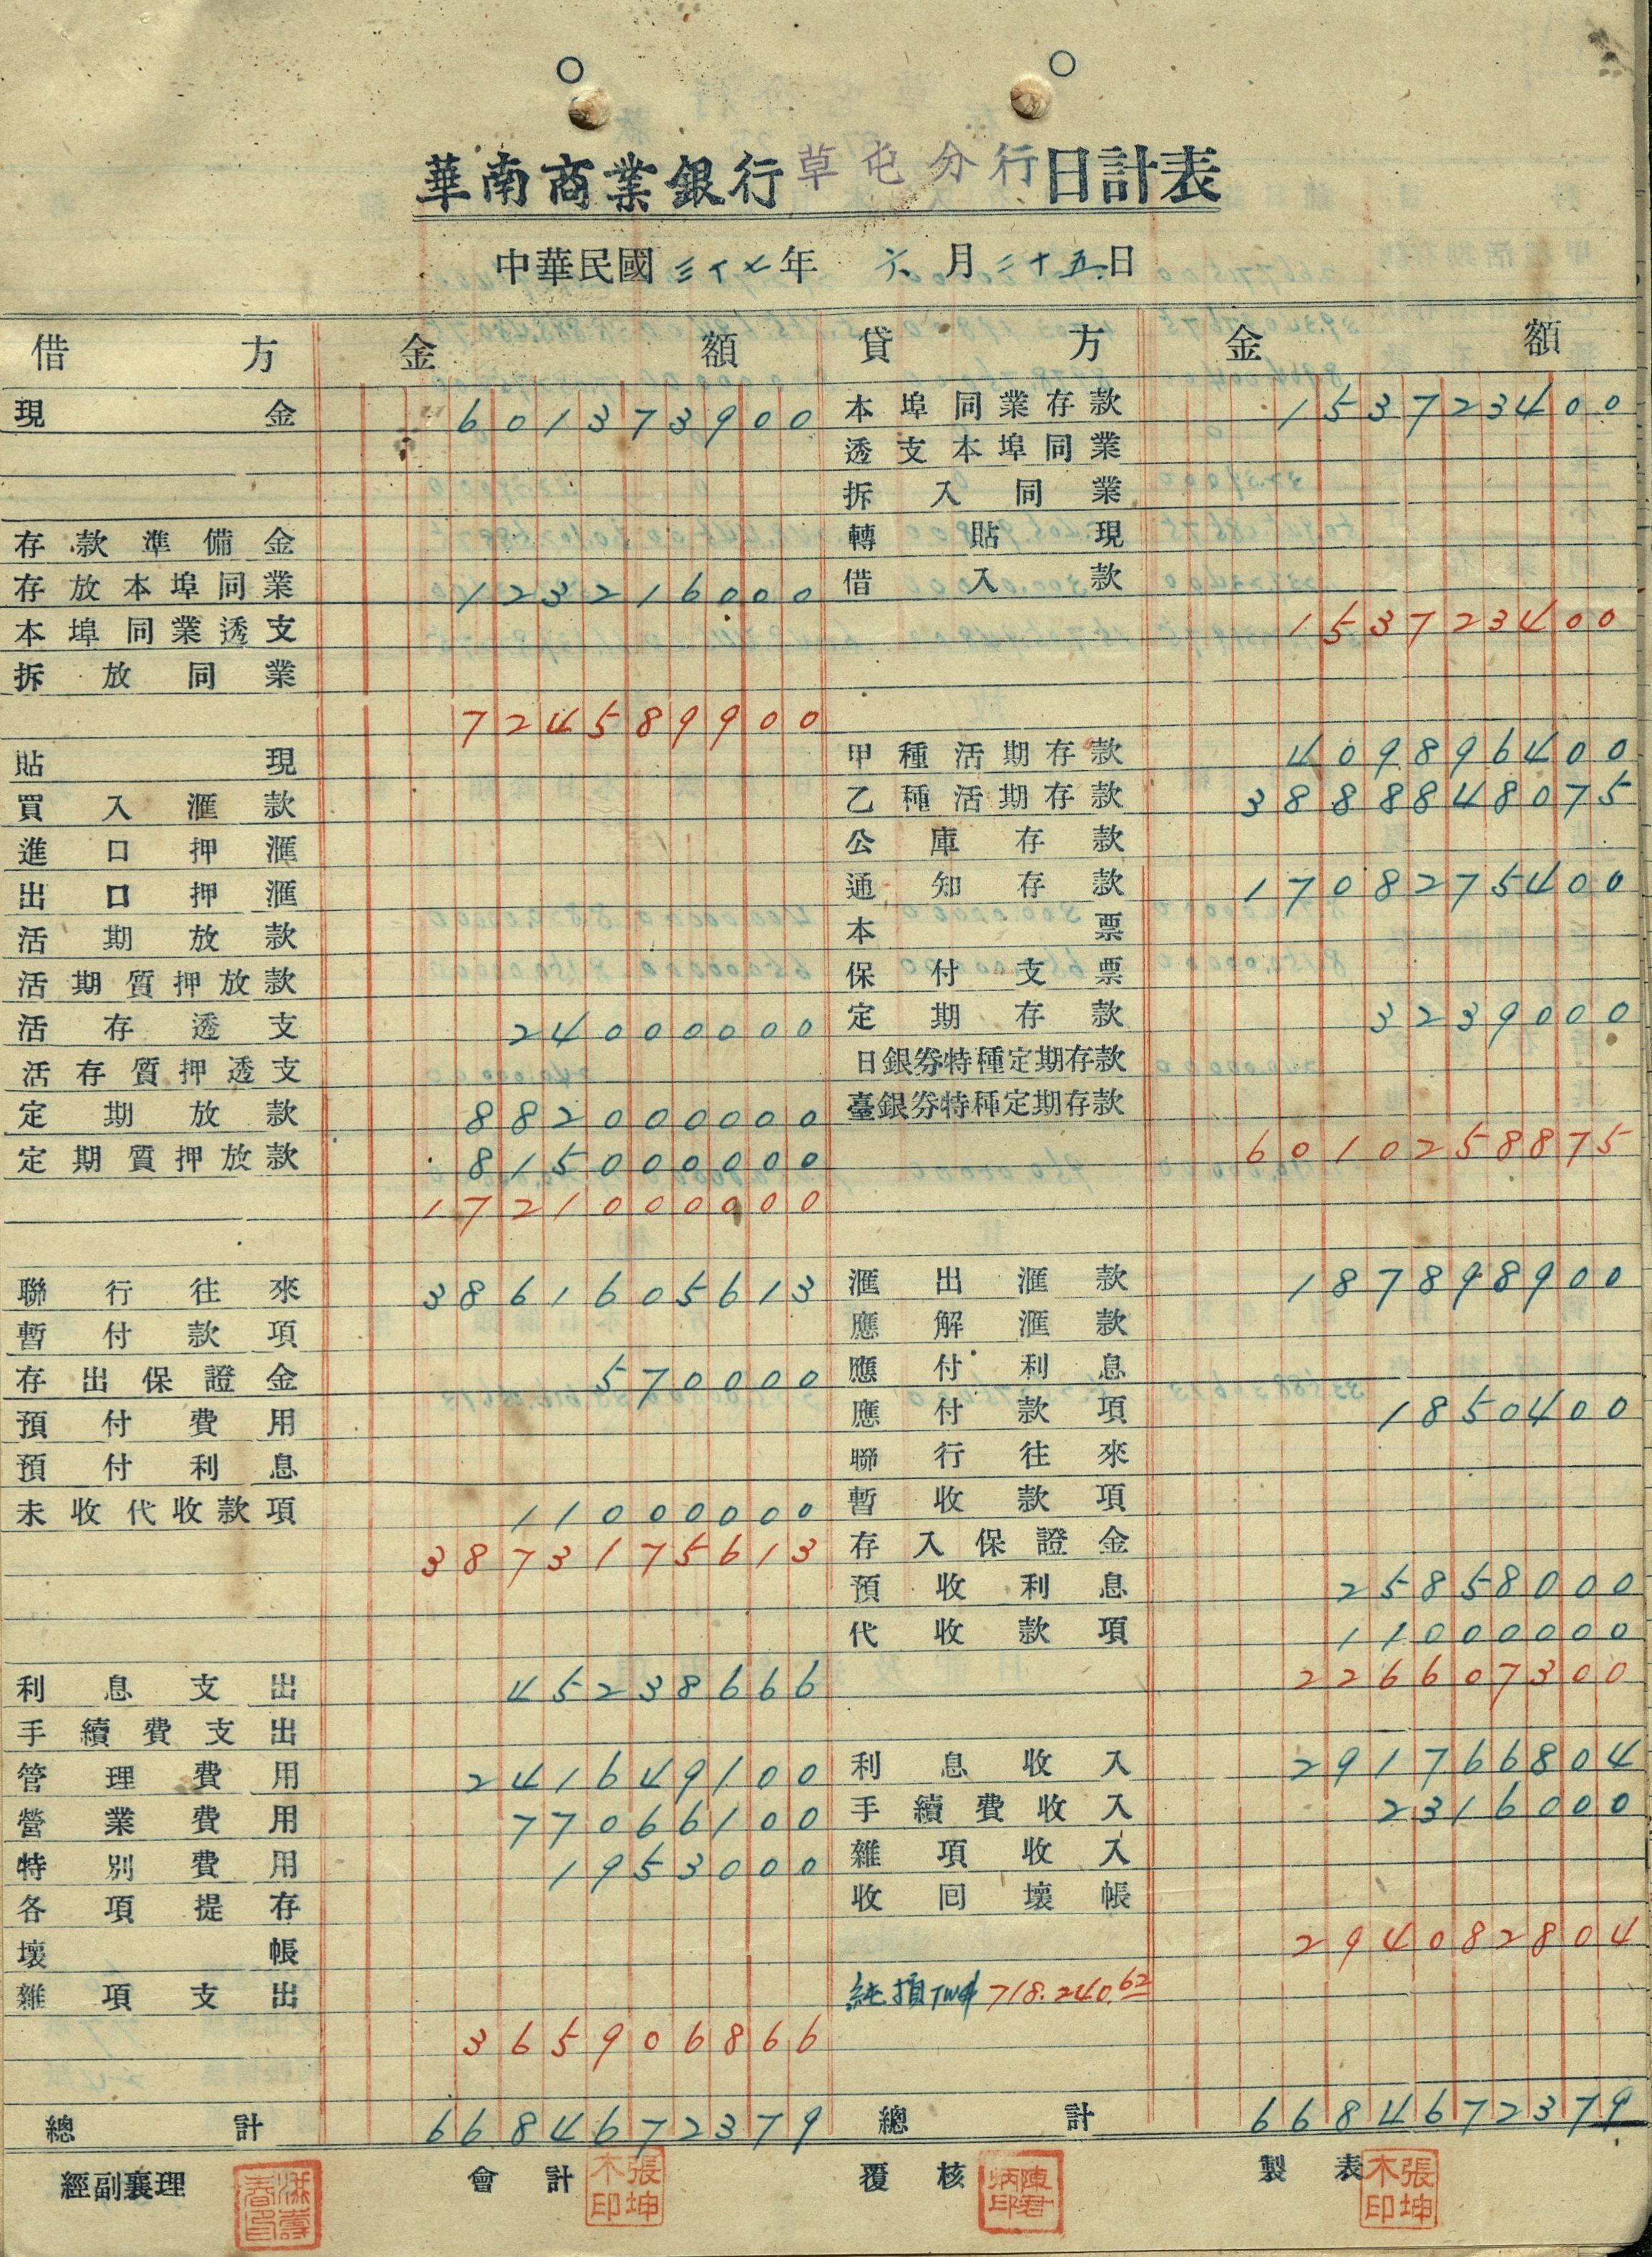 華南商業銀行草屯分行日計表
中華民國三十七年 六月二十五日
借方 金額 貸方 金額
現金 601373900
存款準備金
存放本埠同業 123216000
本埠同業透支
拆放同業
724589900
貼現
買入滙款
進口押滙
出口押滙
活期放款
活期質押放款
活存透支 24000000
活存質押透支
定期放款 882000000
定期質押放款 815000000
1721000000
聯行往來 3861605613
暫付款項
存出保證金 570000
預付費用
預付利息
未收代收款項 11000000
3873175613
利息支出 45238666
手續費支出
管理費用 241649100
營業費用 77066100
特別費用 1953000
各項提存
壞帳
雜項支出
365906866
總計 6684672379
本埠同業存款 153723400
透支本埠同業
拆入同業
轉貼現
借入款
153723400
甲種活期存款 409896400
乙種活期存款 3888848075
公庫存款
通知存款 1708275400
本票
保付支票
定期存款 3239000
日銀券特種定期存款
臺銀券特種定期存款
6010258875
滙出滙款 187898900
應解滙款
應付利息
應付款項 1850400
聯行往來
暫收款項
存入保證金
預收利息 25858000
代收款項 11000000
226607300
利息收入 291766804
手續費收入 2316000
雜項收入
收回壞帳
294082804
純損TW$ 718.240.62
總計 6684672379
經副襄理 會計 張坤木印 覆核 陳君炳印 製表 張坤木印